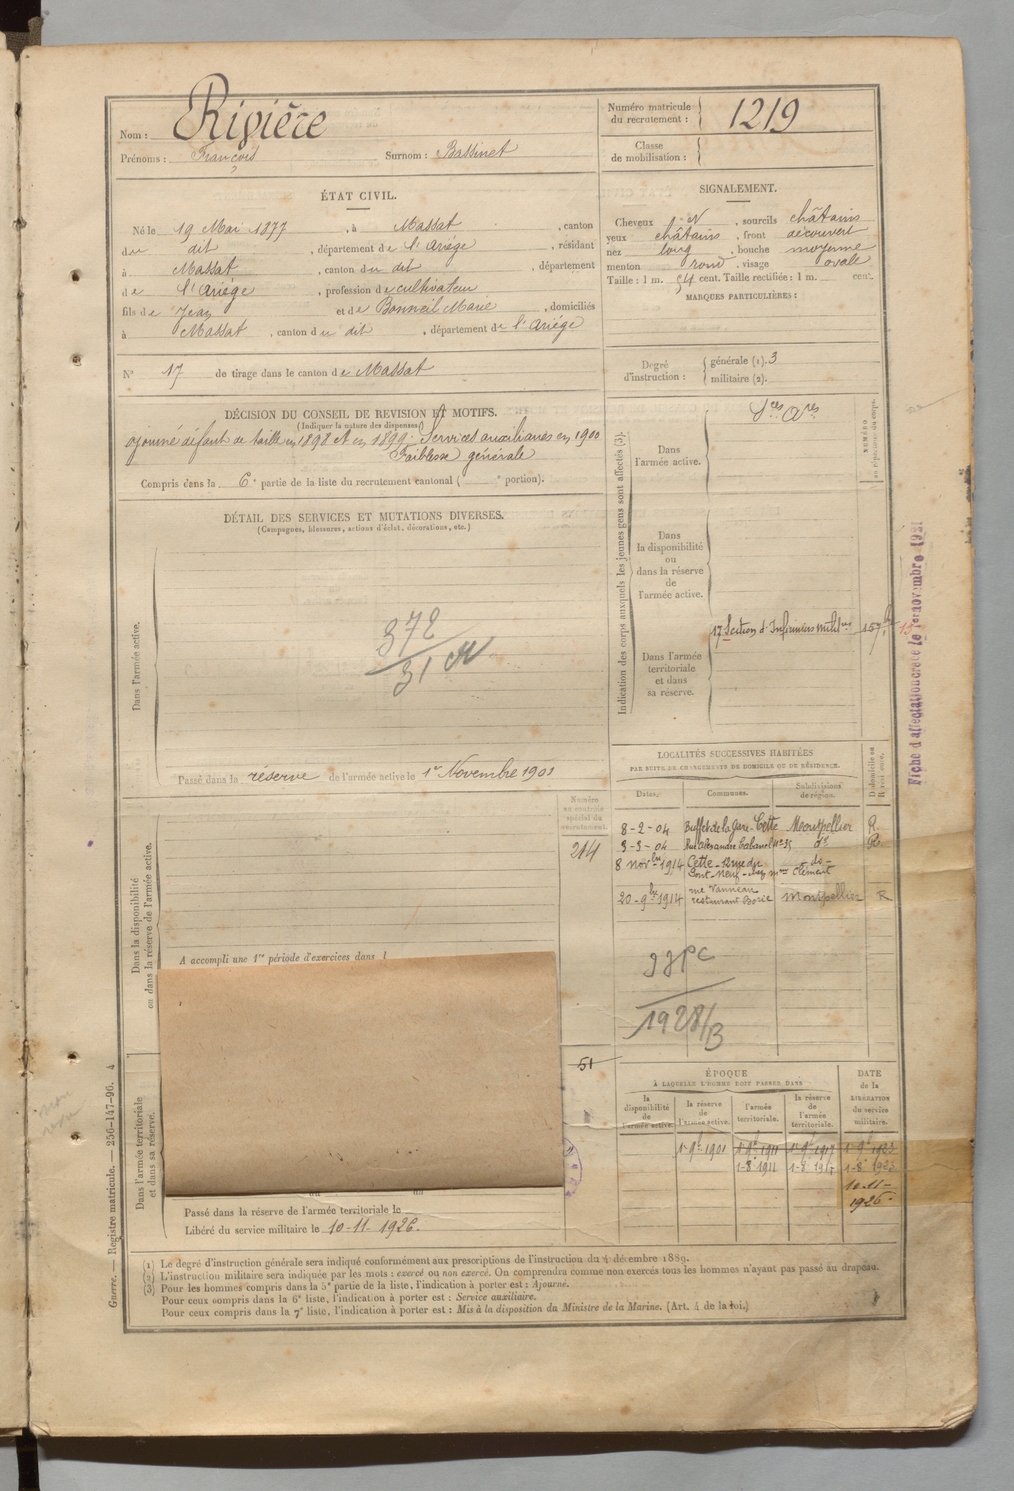 Nom : Rivière
Prénoms : François Surnom : Bassinet
Numéro matricule du recrutement : 1219
Classe de mobilisation :
ÉTAT CIVIL.
Né le 19 Mai 1877, à Massat, canton
du dit, département de l'Ariége, résidant
à Massat, canton du dit, département
de l'Ariége, profession de cultivateur
fils de Jean et de Bonneil Marie, domiciliés
à Massat, canton du dit, département de l'Ariége
N° 17 de tirage dans le canton de Massat
SIGNALEMENT.
Cheveux N, sourcils châtains
yeux châtains, front découvert
nez long, bouche moyenne
menton rond, visage ovale
Taille : 1 m. 54 cent. Taille rectifiée : 1 m. cent.
MARQUES PARTICULIÈRES :
Degré d'instruction : générale (1). 3
militaire (2).
DÉCISION DU CONSEIL DE REVISION ET MOTIFS.
(Indiquer la nature des dispenses.)
ajourné défaut de taille en 1898 et en 1899. Services auxiliaires en 1900
Faiblesse générale
Compris dans la 6e partie de la liste du recrutement cantonal ( e portion).
DÉTAIL DES SERVICES ET MUTATIONS DIVERSES.
(Campagnes, blessures, actions d'éclat, décorations, etc.)
Dans l'armée active.
372
31
Passé dans la réserve de l'armée active le 1er Novembre 1901
Indication des corps auxquels les jeunes gens sont affectés (3).
NUMÉRO
au répertoire du corps.
Sces Ares
Dans
l'armée active.
Dans
la disponibilité
ou
dans la réserve
de
l'armée active.
17 Section d'Infirmiers milires 157
Dans l'armée
territoriale
et dans
sa réserve.
Fiche d'affectation créée le 1er novembre 1921
LOCALITÉS SUCCESSIVES HABITÉES
PAR SUITE DE CHANGEMENTS DE DOMICILE OU DE RÉSIDENCE.
Dates. Communes. Subdivisions de région. D domicile ou R résidence.
8-2-04 Buffet de la Gare-Cette Montpellier R.
3-3-04 Rue Alexandre Cabanel n° 35 do R.
8 novbre 1914 Cette - rue du do
Pont-Neuf - chez mme Clément
20-9bre 1914 rue Vanneau
restaurant Borie Montpellier R
1928/3
Dans la disponibilité
ou dans la réserve de l'armée active.
Numéro
au contrôle
spécial du
recrutement.
214
A accompli une 1re période d'exercices dans l
51
Dans l'armée territoriale
et dans sa réserve.
Passé dans la réserve de l'armée territoriale le
Libéré du service militaire le 10-11-1926.
ÉPOQUE
À LAQUELLE L'HOMME DOIT PASSER DANS
la disponibilité de l'armée active.
la réserve de l'armée active.
l'armée territoriale.
la réserve de l'armée territoriale.
DATE de la LIBÉRATION du service militaire.
1er 9bre 1901 1er 9bre 1911 1er 9bre 1917 1er 9bre 1923
1-8bre 1911 1-8bre 1917 1-8bre 1923
10-11-
1926.
(1) Le degré d'instruction générale sera indiqué conformément aux prescriptions de l'instruction du 4 décembre 1889.
(2) L'instruction militaire sera indiquée par les mots : exercé ou non exercé. On comprendra comme non exercés tous les hommes n'ayant pas passé au drapeau.
(3) Pour les hommes compris dans la 5e partie de la liste, l'indication à porter est : Ajourné.
Pour ceux compris dans la 6e liste, l'indication à porter est : Service auxiliaire.
Pour ceux compris dans la 7e liste, l'indication à porter est : Mis à la disposition du Ministre de la Marine. (Art. 4 de la loi.)
Guerre. — Registre matricule. — 256-147-96. 4